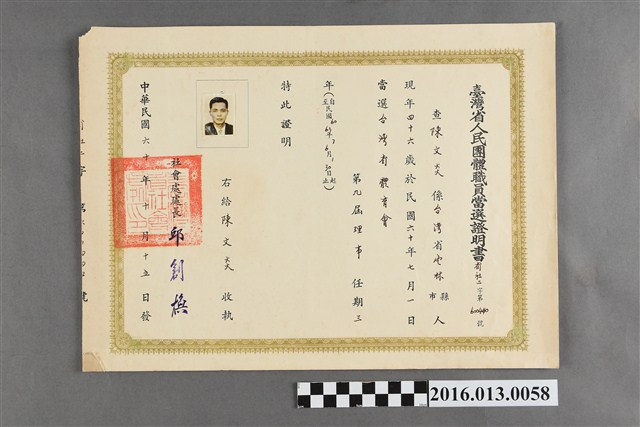 臺灣省人民團體職員當選證明書 社 字第 號
查陳文 係台灣省雲林縣市人
現年四十六歲於民國六十年七月一日
當選台灣省體育會
第九屆理事 任期三
年(自民國60年7月1日起至 年6月 日止)
特此證明
右給陳文 收執
社會處處長 邱創煥
中華民國六十年十月十五日發
2016.013.0058